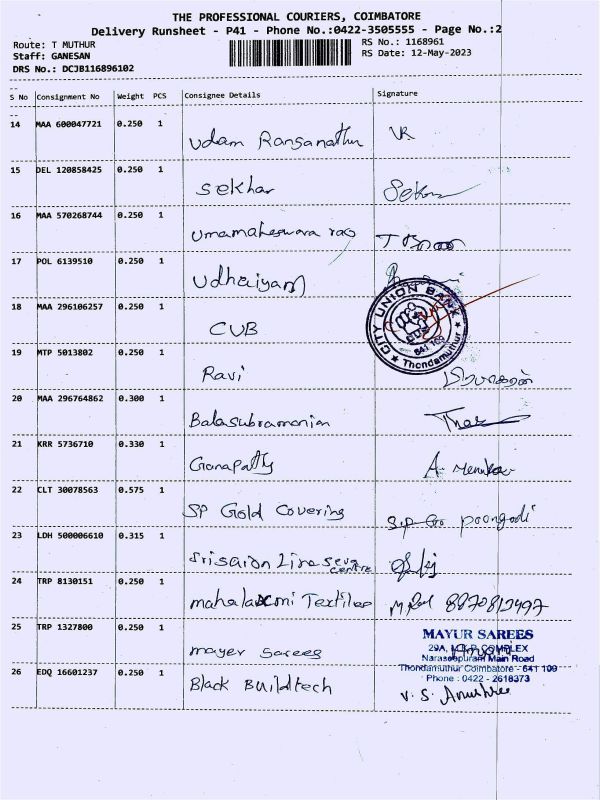 THE PROFESSIONAL COURIERS, COIMBATORE
Delivery Runsheet - P41 - Phone No.:0422-3505555 - Page No.:2
Route: T MUTHUR
RS No.: 1168961
Staff: GANESAN
RS Date: 12-May-2023
DRS No.: DCJB116896102
S No Consignment No Weight PCS Consignee Details Signature
14 MAA 600047721 0.250 1 Udam Ranganathan VR
15 DEL 120858425 0.250 1 Sekhar
16 MAA 570268744 0.250 1 Umamaheswara rao
17 POL 6139510 0.250 1 Udhaiyam
18 MAA 296106257 0.250 1 CUB
CITY UNION BANK
CUB
641 109
Thondamuthur
19 MTP 5013802 0.250 1 Ravi
20 MAA 296764862 0.300 1 Balasubramanian
21 KRR 5736710 0.330 1 Ganapathy A. Menuka
22 CLT 30078563 0.575 1 SP Gold Covering S.P poongodi
23 LDH 500006610 0.315 1 centre
24 TRP 8130151 0.250 1 mahalaxmi Textiles
25 TRP 1327800 0.250 1 mayer sarees
MAYUR SAREES
29A, M.K.P. COMPLEX
Naraseepuram Main Road
Thondamuthur Coimbatore - 641 109
Phone : 0422 - 2618373
26 EDQ 16601237 0.250 1 Black Buildtech V. S. Anushree